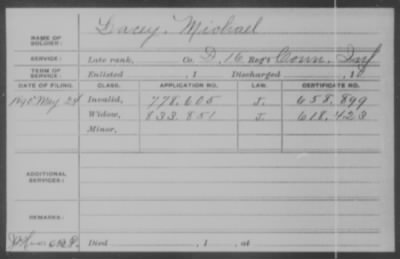 Lacey, Michael
NAME OF SOLDIER:
SERVICE: Late rank, Co. D, 16 Reg't Conn. Inf
TERM OF SERVICE: Enlisted , 1 Discharged , 1
DATE OF FILING. CLASS. APPLICATION NO. LAW. CERTIFICATE NO.
1890 May 24 Invalid, 778.605 J. 658.899
Widow, 833.851 J. 618.423
Minor,
ADDITIONAL SERVICES:
REMARKS:
Died , 1 , at